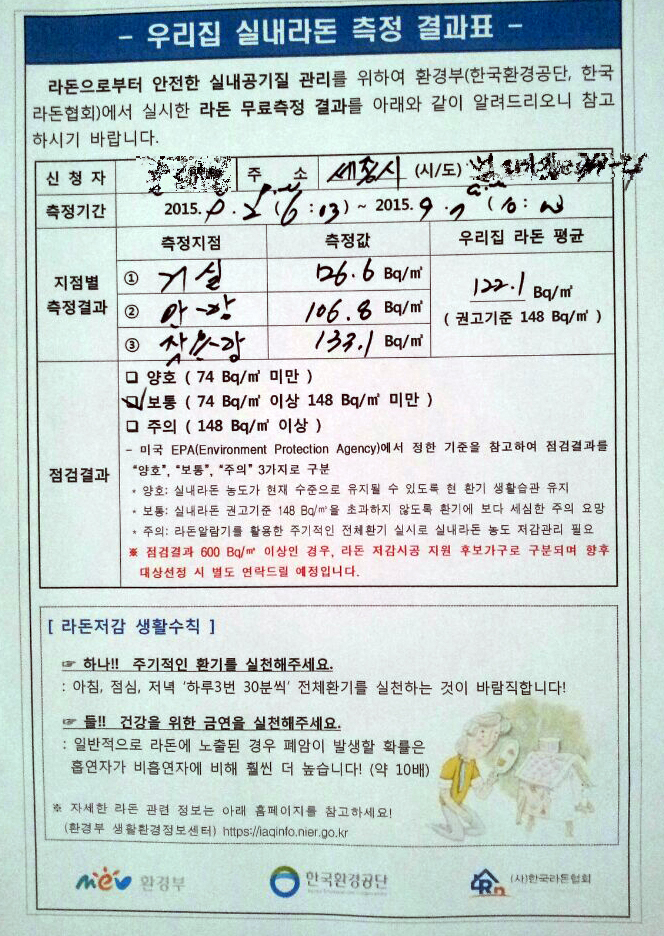 - 우리집 실내라돈 측정 결과표 -
라돈으로부터 안전한 실내공기질 관리를 위하여 환경부(한국환경공단, 한국
라돈협회)에서 실시한 라돈 무료측정 결과를 아래와 같이 알려드리오니 참고
하시기 바랍니다.
신 청 자 주 소 세종시 (시/도)
측정기간 2015. ( 6 : 03 ) ~ 2015. 9 . 7 ( : )
측정지점 측정값 우리집 라돈 평균
지점별
측정결과
① 거실 126.6 Bq/㎥
② 안방 106.8 Bq/㎥
③ 작은방 133.1 Bq/㎥
122.1 Bq/㎥
( 권고기준 148 Bq/㎥ )
점검결과
❑ 양호 ( 74 Bq/㎥ 미만 )
☑ 보통 ( 74 Bq/㎥ 이상 148 Bq/㎥ 미만 )
❑ 주의 ( 148 Bq/㎥ 이상 )
- 미국 EPA(Environment Protection Agency)에서 정한 기준을 참고하여 점검결과를
"양호", "보통", "주의" 3가지로 구분
* 양호: 실내라돈 농도가 현재 수준으로 유지될 수 있도록 현 환기 생활습관 유지
* 보통: 실내라돈 권고기준 148 Bq/㎥을 초과하지 않도록 환기에 보다 세심한 주의 요망
* 주의: 라돈알람기를 활용한 주기적인 전체환기 실시로 실내라돈 농도 저감관리 필요
※ 점검결과 600 Bq/㎥ 이상인 경우, 라돈 저감시공 지원 후보가구로 구분되며 향후
대상선정 시 별도 연락드릴 예정입니다.
[ 라돈저감 생활수칙 ]
☞ 하나!! 주기적인 환기를 실천해주세요.
: 아침, 점심, 저녁 '하루3번 30분씩' 전체환기를 실천하는 것이 바람직합니다!
☞ 둘!! 건강을 위한 금연을 실천해주세요.
: 일반적으로 라돈에 노출된 경우 폐암이 발생할 확률은
흡연자가 비흡연자에 비해 훨씬 더 높습니다! (약 10배)
※ 자세한 라돈 관련 정보는 아래 홈페이지를 참고하세요!
(환경부 생활환경정보센터) https://iaqinfo.nier.go.kr
mev 환경부 한국환경공단 (사)한국라돈협회